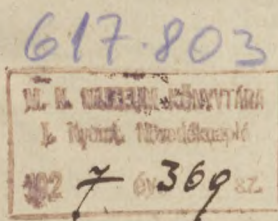 617.803
M. N. MUZEUM KÖNYVTÁRA
I. Nyomt. Növedéknapló
192 7 év 369 sz.